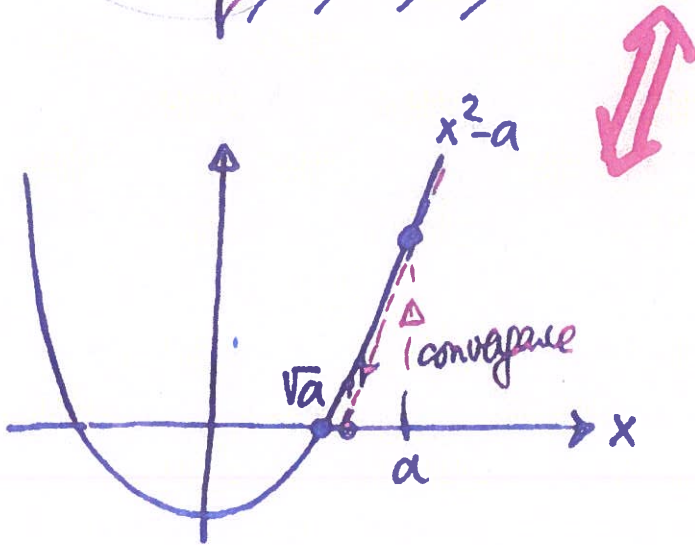 x²-a
√a
convergence
x
a